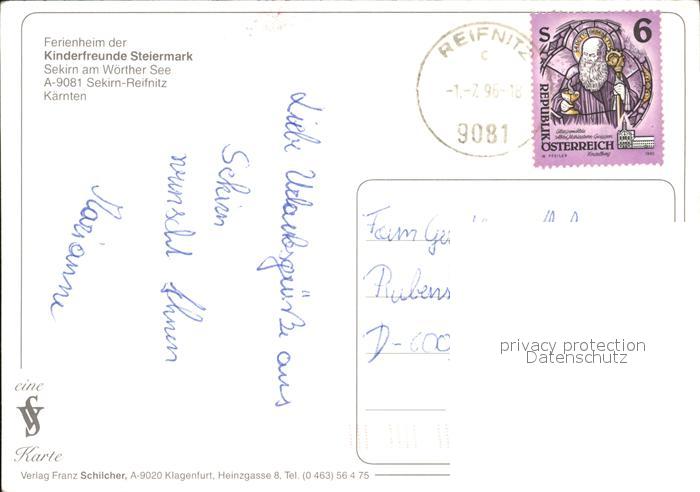 Ferienheim der
Kinderfreunde Steiermark
Sekirn am Wörther See
A-9081 Sekirn-Reifnitz
Kärnten
REIFNITZ
c
-1.-7.96-18
9081
S 6
REPUBLIK
ÖSTERREICH
Liebe Urlaubsgrüße aus
Sekirn
wünscht Ihnen
Marianne
Fam
Rubens
D-600
privacy protection
Datenschutz
eine
Karte
Verlag Franz Schilcher, A-9020 Klagenfurt, Heinzgasse 8, Tel. (0 463) 56 4 75